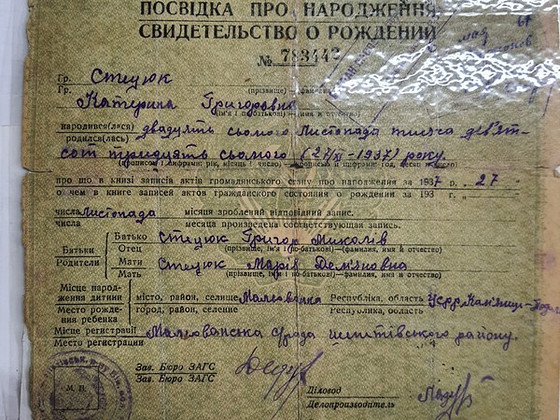 ПОСВІДКА ПРО НАРОДЖЕННЯ
СВИДЕТЕЛЬСТВО О РОЖДЕНИИ
№ 783442
Гр. Стецюк
Гр. (прізвище) —фамилия)
Катерина Григоровна
(ім'я і по-батькові)—имя и отчество)
народився(лася) двадцять сьомого Листопада тисяча дев'ят-
родился(лась)
сот тридцять сьомого (27/XI-1937) року.
про що в книзі записів актів громадянського стану про народження за 1937 р. 27
о чем в книге записей актов гражданского состояния о рождении за 193 г.
числа Листопада місяця зроблений відповідний запис.
числа месяца произведена соответствующая запись.
Батьки Батько Стецюк Григор Миколів
Родители Отец (прізвище, ім'я і по-батькові)—фамилия, имя и отчество)
Мати Стецюк Марія Дем'яновна
Мать (прізвище, ім'я і по-батькові)—фамилия, имя и отчество)
Місце народ-
ження дитини місто, район, селище Республіка, область УСРР
Место рожде-
ния ребенка город, район, селение Республика, область
Місце реєстрації району.
Место регистрации
Зав. Бюро ЗАГС
Зав. Бюро ЗАГС
Діловод
Делопроизводитель
М. П.